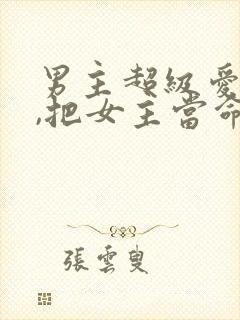 男主超級愛
,把女主當命
張雲叟